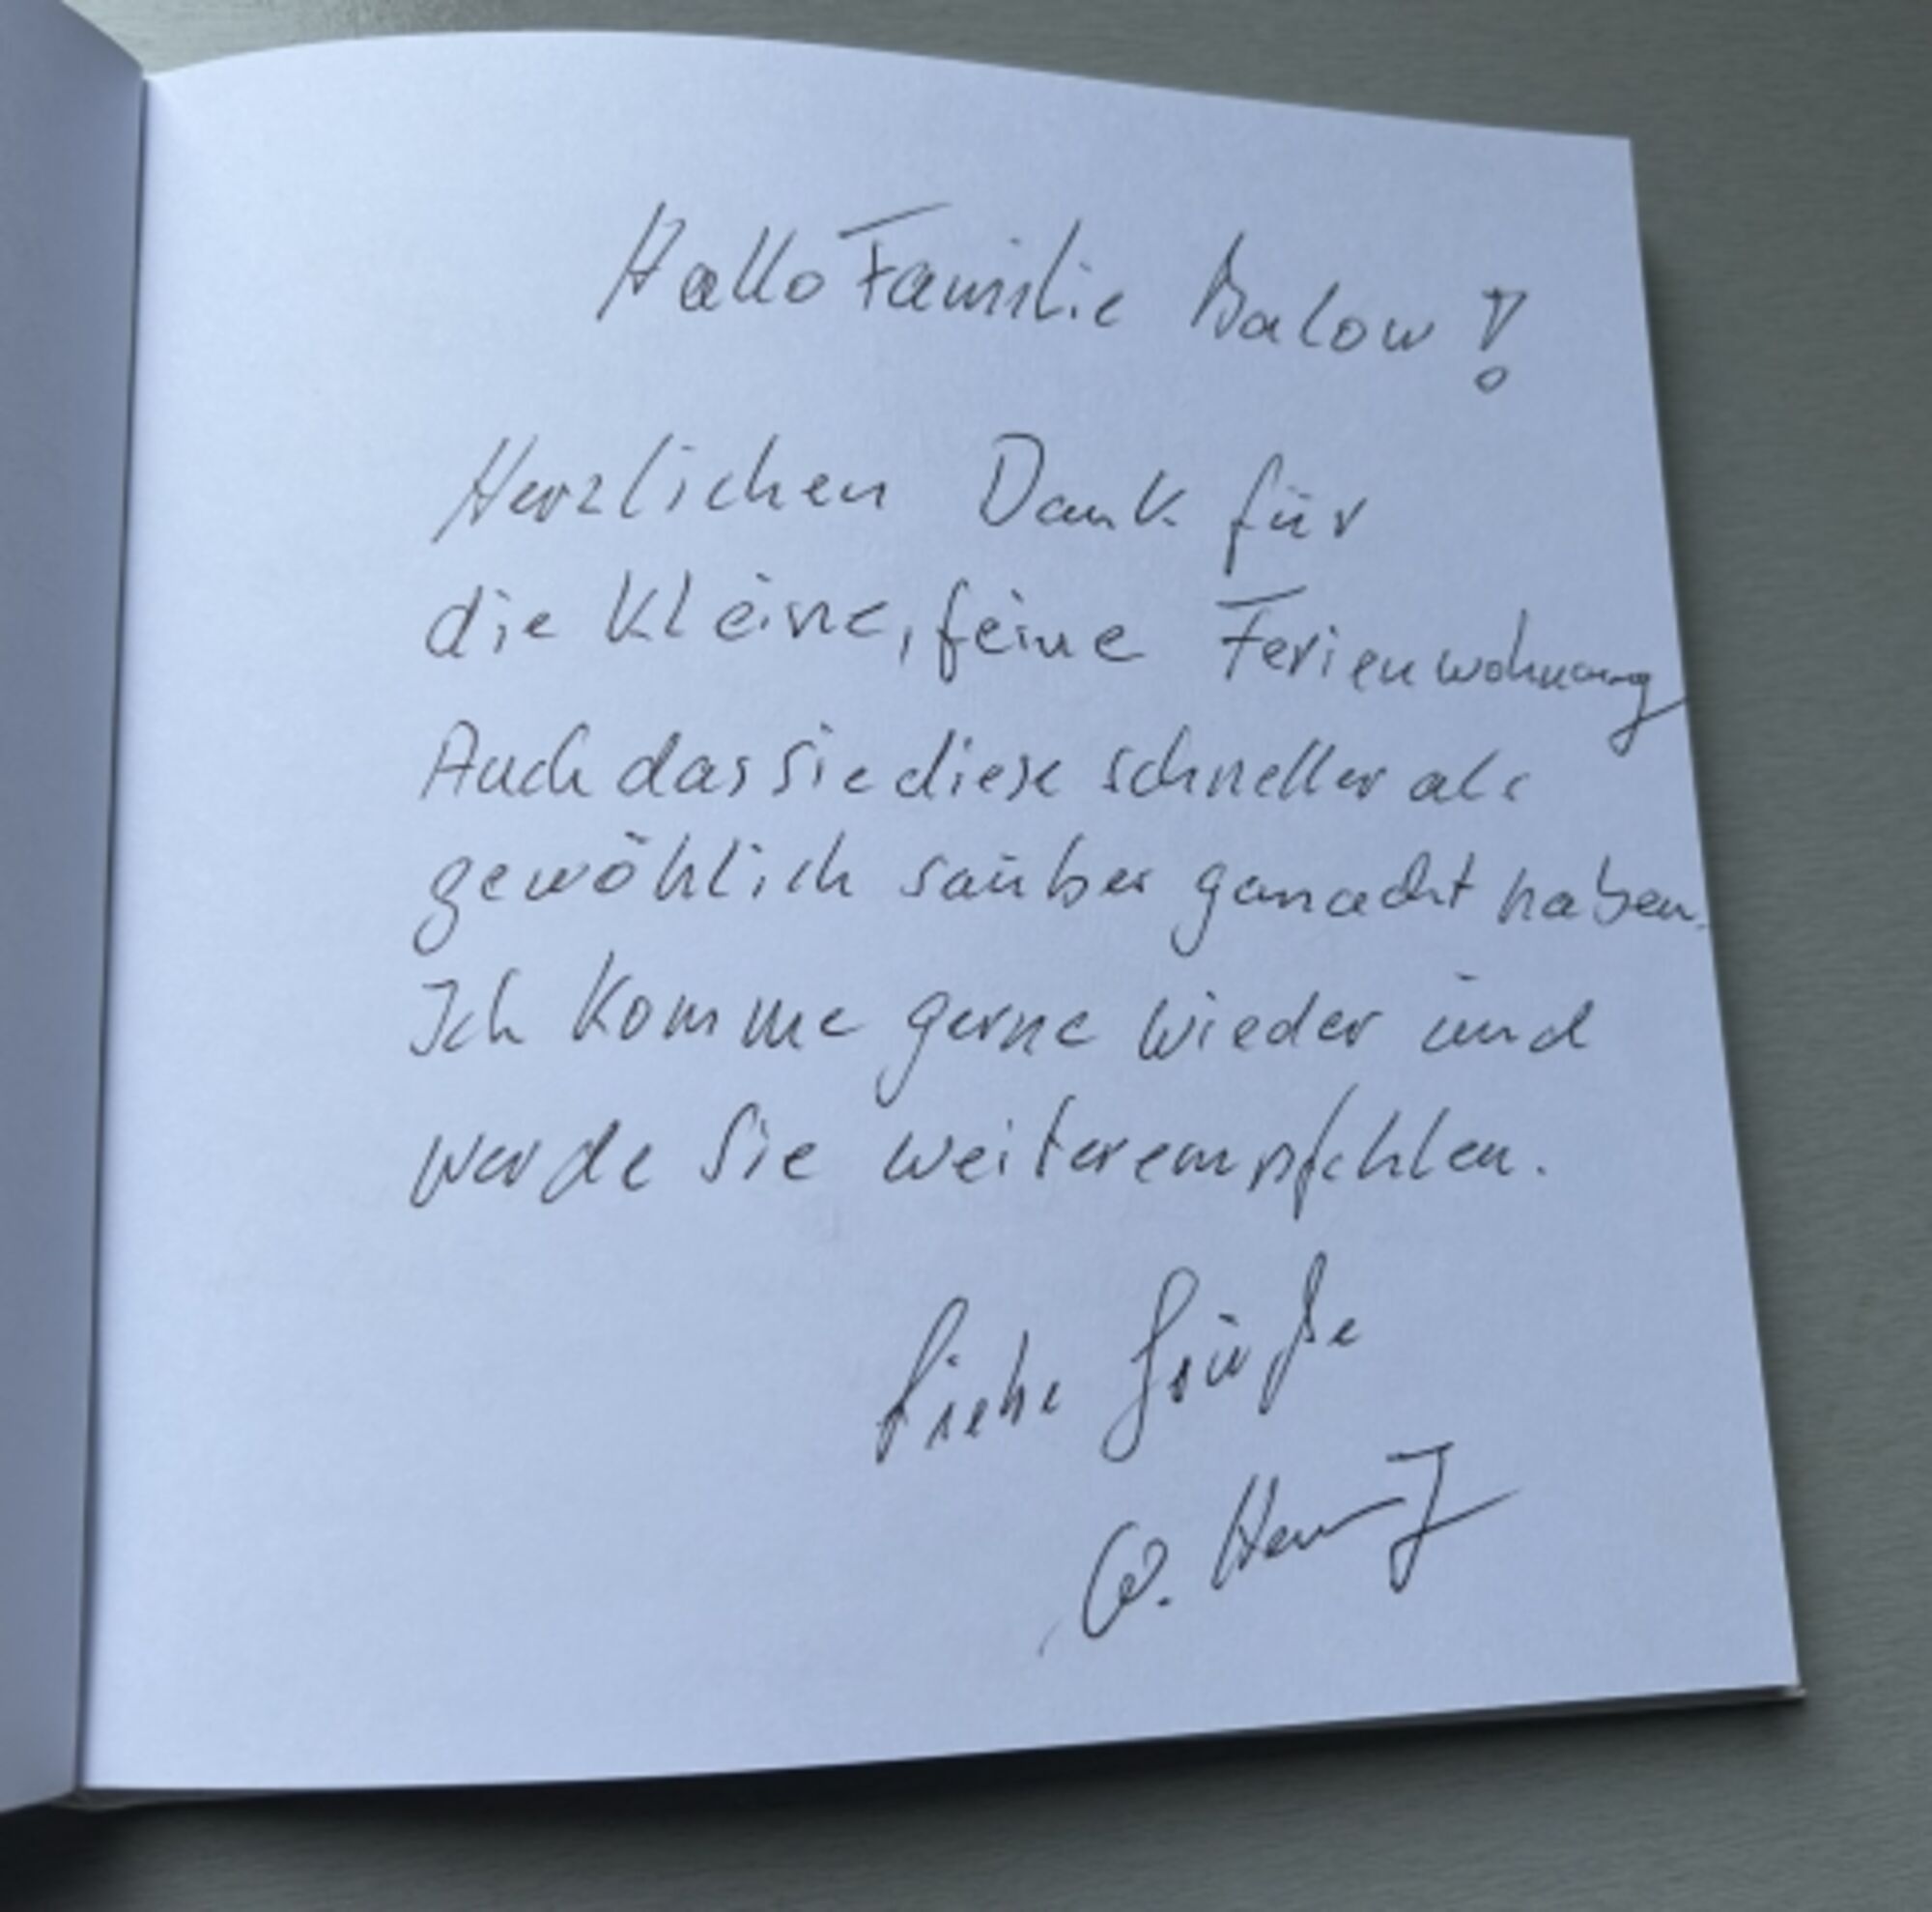 Hallo Familie Balow!
Herzlichen Dank für
die kleine, feine Ferienwohnung
Auch das sie diese schneller als
gewöhlich sauber gemacht haben.
Ich komme gerne wieder und
werde Sie weiterempfehlen.
Liebe Grüße